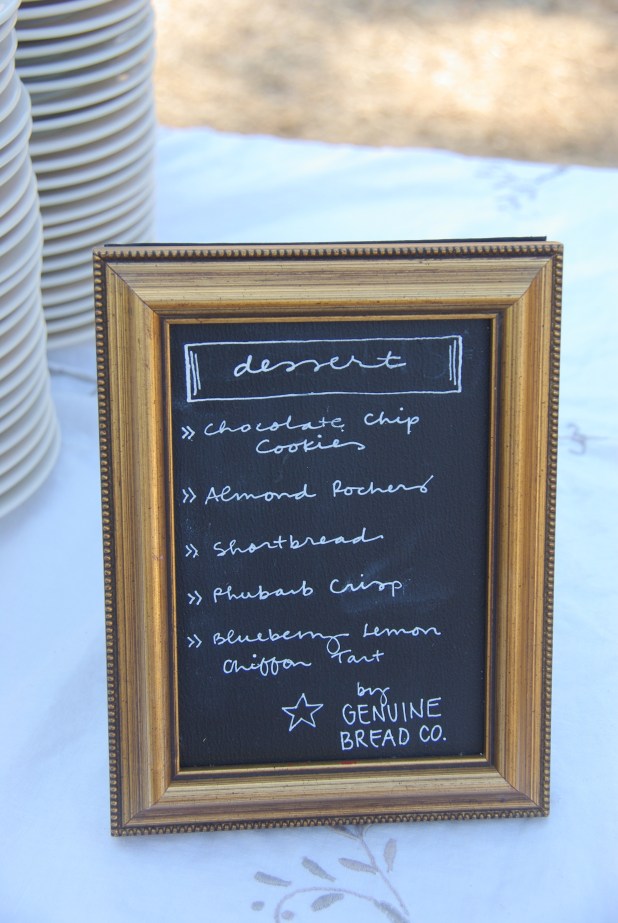 dessert
» Chocolate Chip
Cookies
» Almond Rochers
» Shortbread
» Rhubarb Crisp
» Blueberry Lemon
Chiffon Tart
by
GENUINE
BREAD CO.